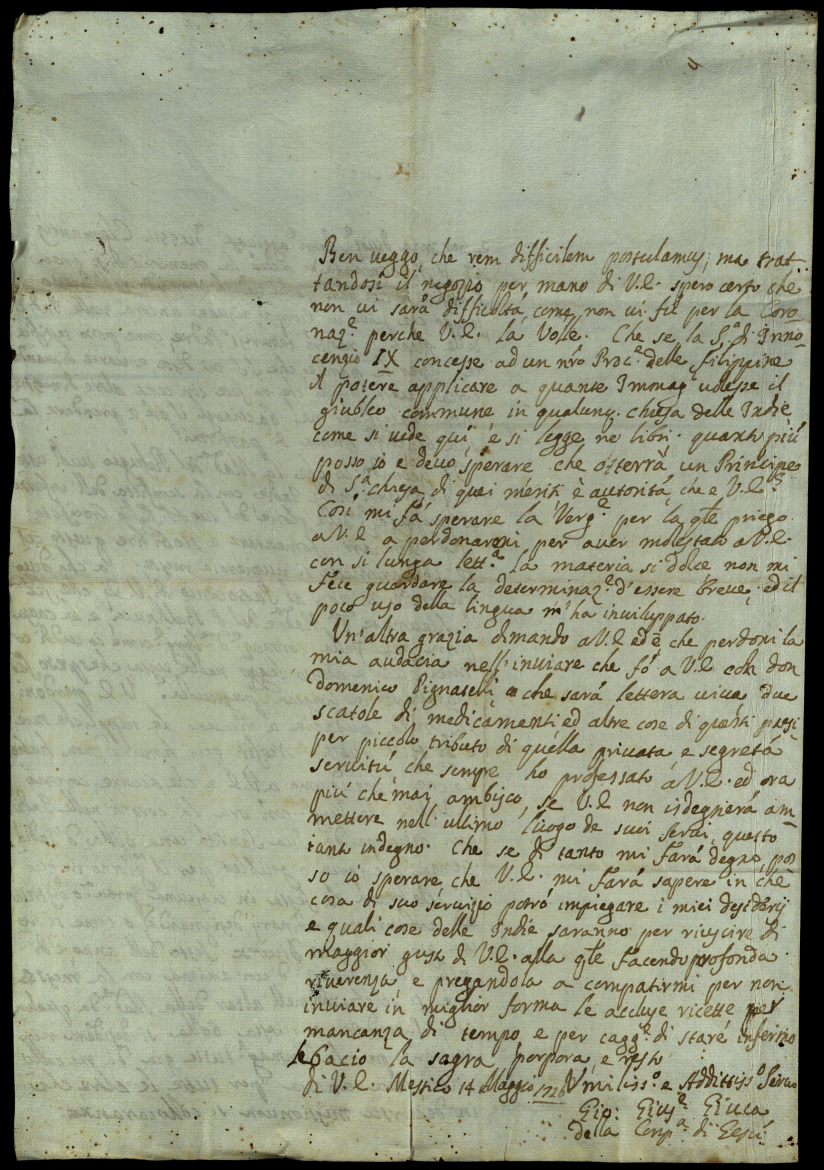 4
Ben veggo, che rem difficilem postulamus; ma trat
tandosi il negozio per mano di V.E. spero certo che
non vi sarà difficoltà, come non vi fù per la Coro=
naz.e perche V.E. la volle. Che se la S.a di Inno=
cenzio IX concesse ad un nr̃o Proc.e delle Filippine
il potere applicare a quante Immag.i volesse il
giubleo commune in qualunq. chiesa delle Indie
come si vede quì, e si legge ne libri. quanto più
posso io e devo, sperare che otterrà un Principe
di S.a chiesa di quei meriti è autorità, che e V.E.
Così mi fà sperare la Verg.e per la qle priego
a V.E. a perdonarmi per aver molestato a V.E.
con si lunga lett.a la materia si dolce non mi
fece guardare la determinaz.e d'essere breve, ed il
poco uso della lingua m'ha inviluppato.
Un'altra grazia dimando a V.E ed è che perdoni la
mia audacia nell'inviare che fò a V.E con don
Domenico Pignatelli che sarà lettera viva due
scatole di medicamenti ed altre cose di questi paesi
per piccolo tributo di quella privata e segreta
servitù, che sempre ho professato a V.E. ed ora
più che mai ambisco, se V.E non isdegnerà am=
mettere nell'ultimo luogo de suoi servi, questo
tanto indegno. Che se di tanto mi farà degno, pos
so io sperare, che V.E. mi farà sapere in che
cosa di suo servizio potrò impiegare i miei desiderij
e quali cose delle Indie saranno per riuscire di
maggior gusto di V.E. alla qle facendo profonda
riverenza, e pregandola a compatirmi per non
inviare in miglior forma le accluse ricette per
mancanza di tempo e per cagg.e di stare infermo
le bacio la sagra porpora, e resto
di V.E. Messico 14 Maggio 1726 Vmiliss.o e Addittiss.o Servo
Gio: Gius.e Giuca
della Comp.a di Gesù